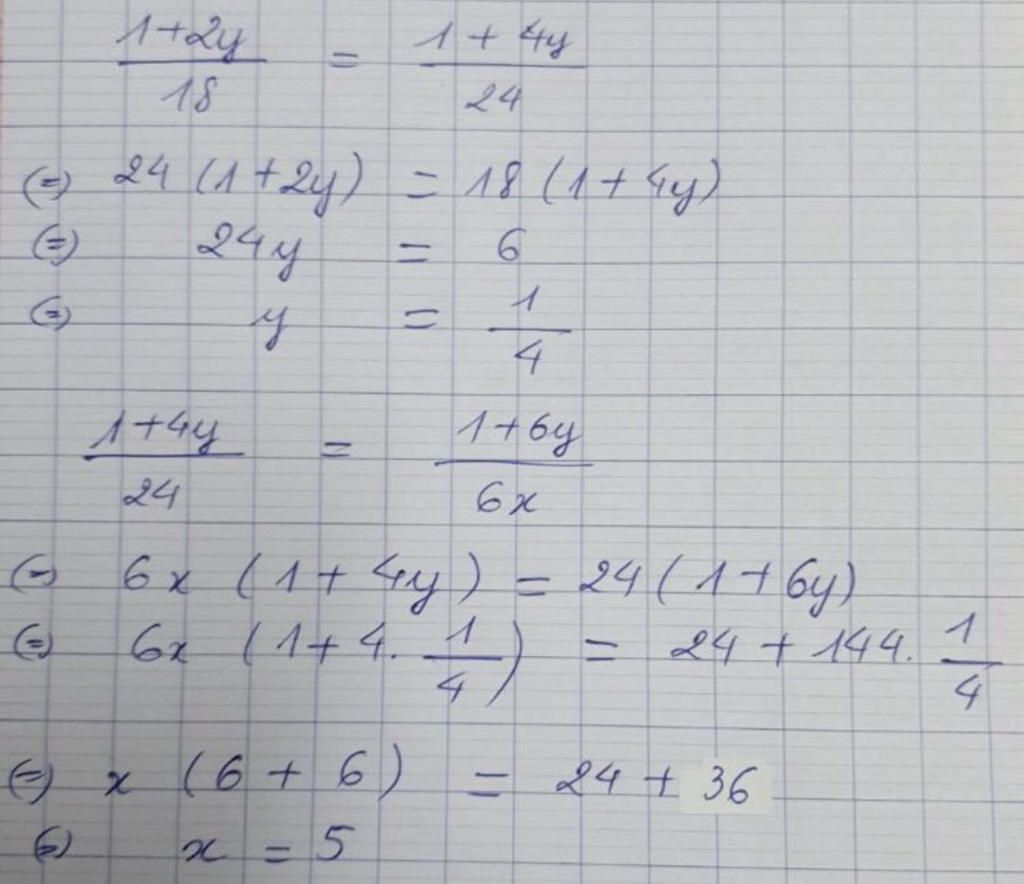 1+2y/18 = 1+4y/24
(=) 24 (1+2y) = 18 (1+4y)
(=) 24y = 6
(=) y = 1/4
1+4y/24 = 1+6y/6x
(=) 6x (1+4y) = 24 (1+6y)
(=) 6x (1+4. 1/4) = 24 + 144. 1/4
(=) x (6 + 6) = 24 + 36
(=) x = 5